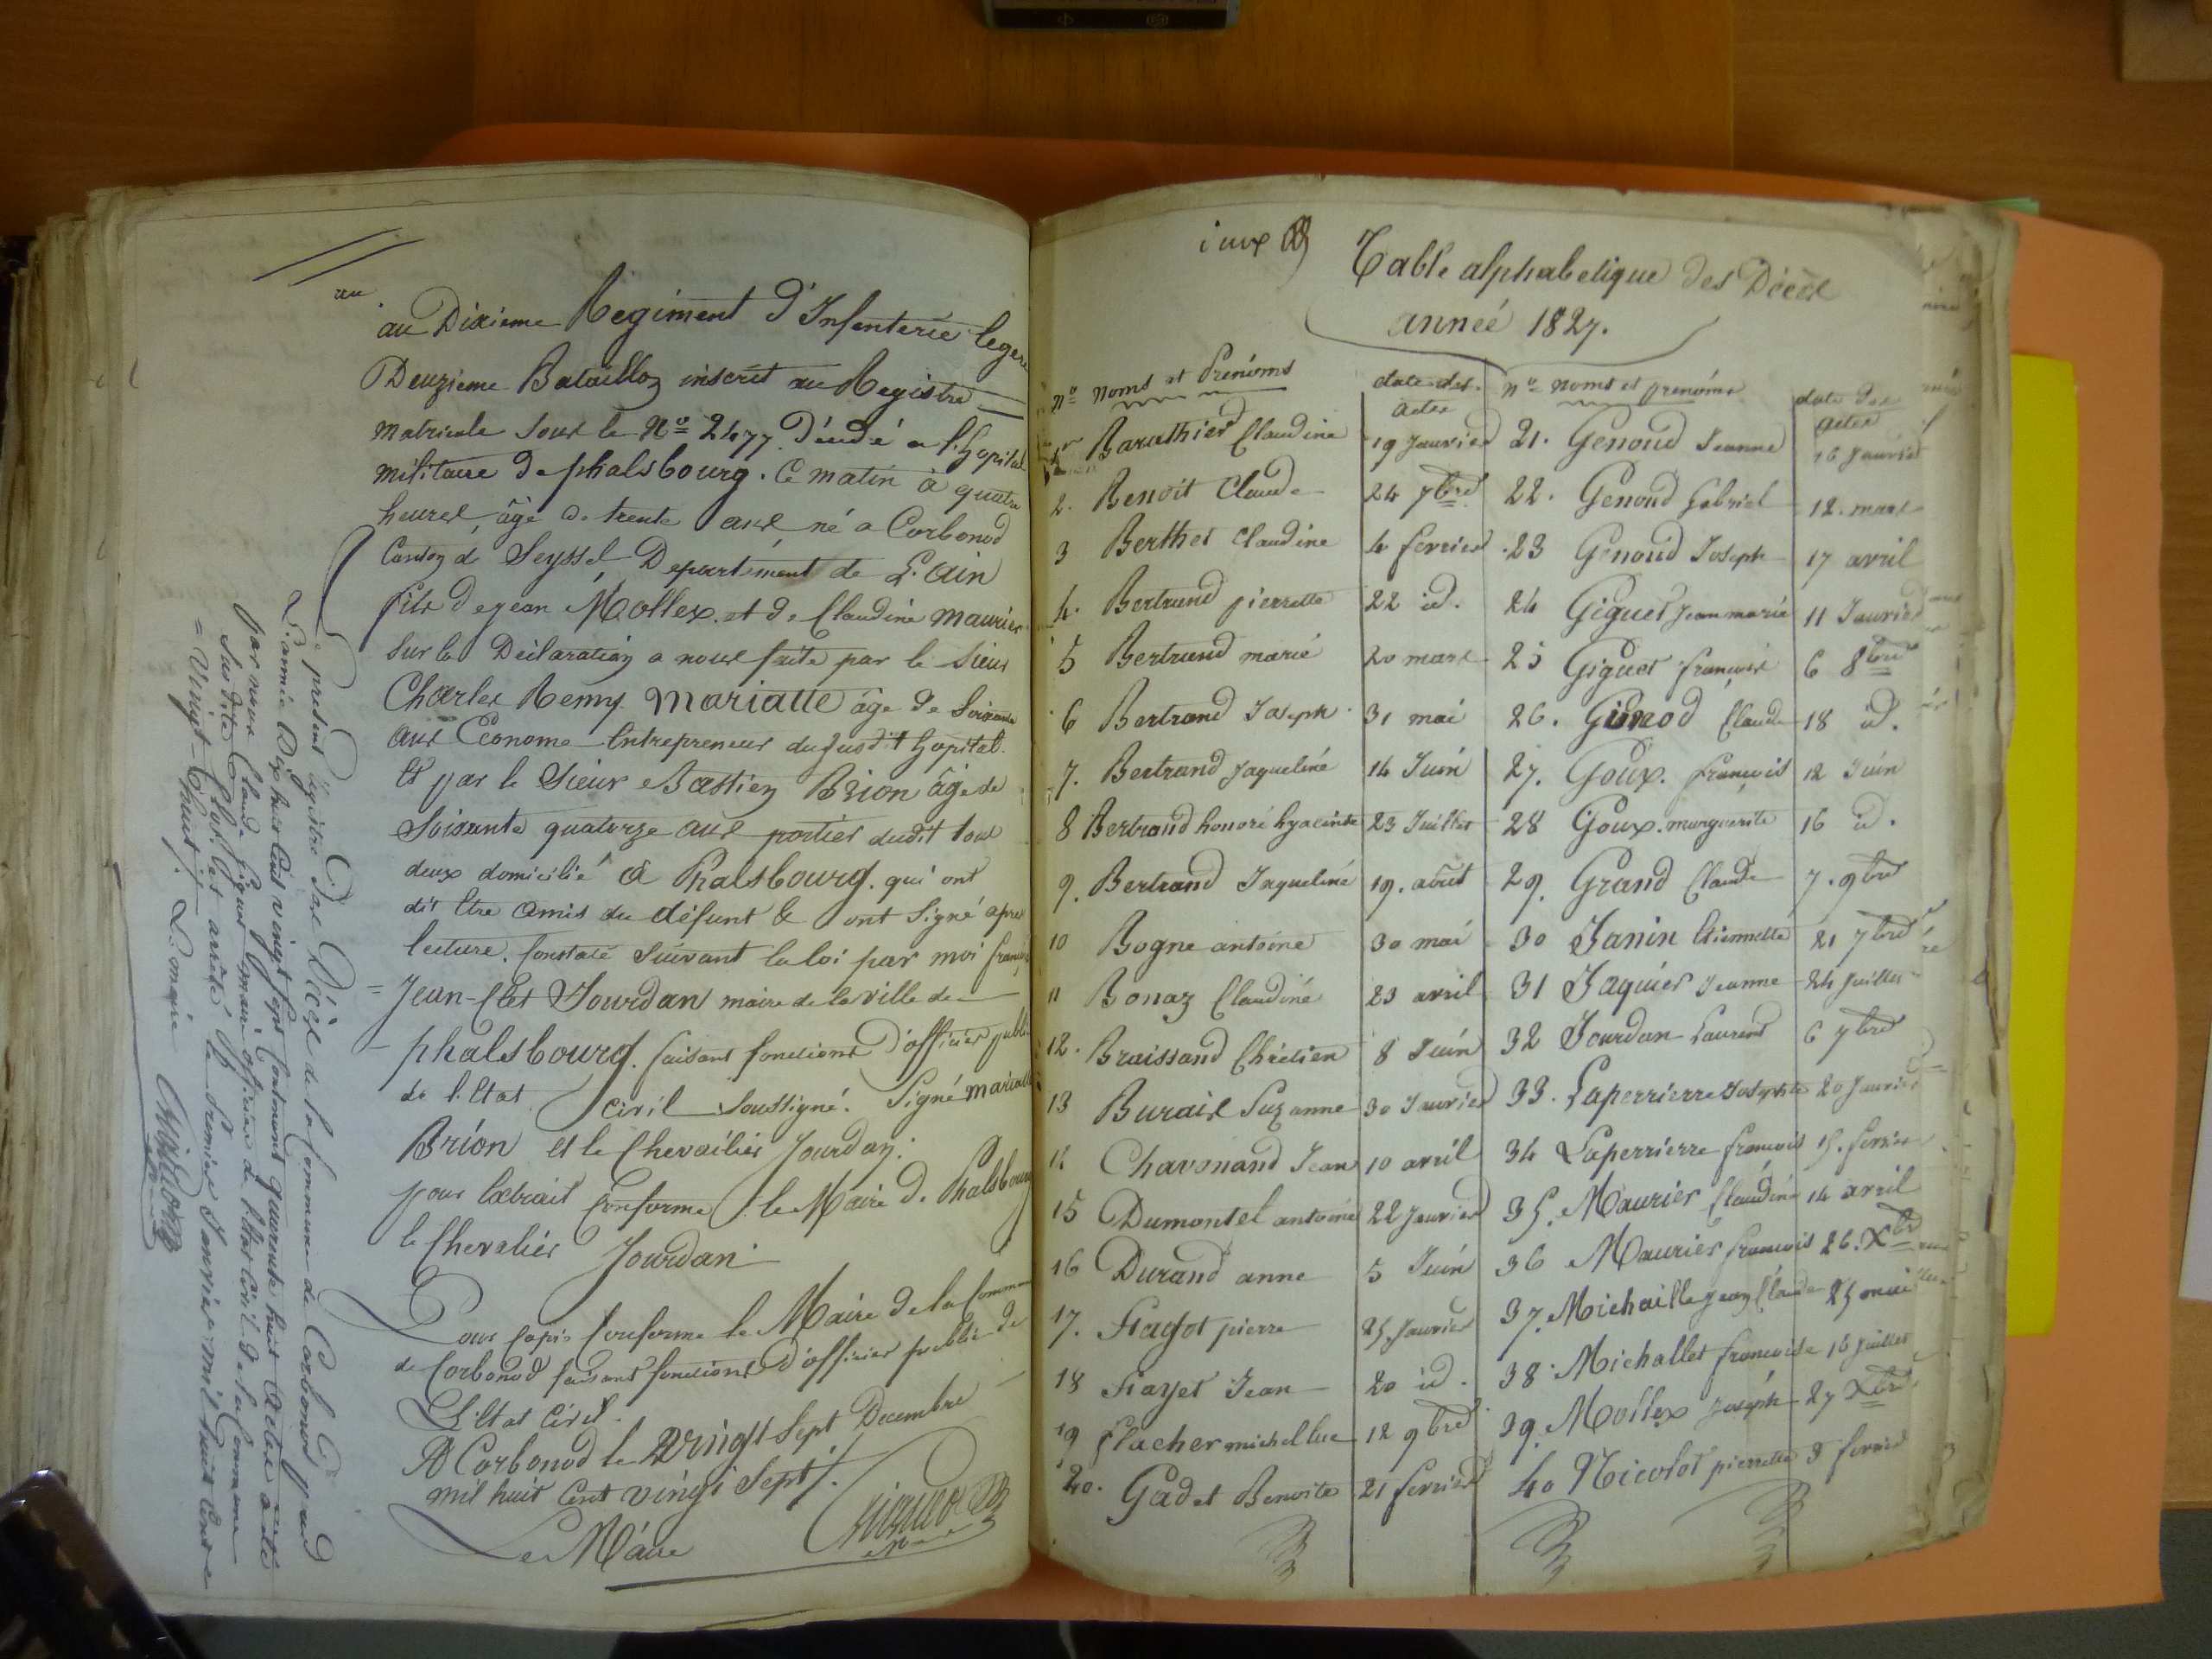 au
au Dixieme Regiment d'Infenterie legere
Deuzieme Bataillon inscrit au Registre
matricule sous le N° 2477. Décédé a l'hopital
militaire de phalsbourg. Ce matin à quatre
heures, âgé de trente ans né a Corbonod
Canton de Seyssel, Departement de L'ain
fils de jean Mollex et de Claudine Maurier
sur la Déclaration a nous faite par le Sieur
Charles Remy Mariatte âgé de Soixante
ans Econome Entrepreneur du susdit hopital.
Et par le Sieur Bastien Brion âgé de
Soixante quatorze ans portier dudit tous
deux domicilié à Phalsbourg. qui ont
dit Etre amis du défunt & ont signé apres
lecture. Constaté suivant la loi par moi françois
= Jean-Clet Jourdan maire de la ville de
- phalsbourg. faisant fonctions d'officier public
de l'Etat civil soussigné. Signé Mariatte
Brion et le Chevailier Jourdan.
pour Extrait Conforme le Maire de Phalsbourg
le Chevalier Jourdan
Pour Copie Conforme le Maire de la Commune
de Corbonod faisant fonctions d'officier public de
L'Etat Civil.
A Corbonod le vingt Sept Decembre
mil huit Cent vingt Sept.
Le Maire
Le présent régitre des Décès de la Commune de Corbonod pour
L'année Dix huit Cent vingt sept Contenant quarante huit actes a été
par nous Claude maire officier de l'état Civil de la Commune
Susdite Clos et arrêté le premier Janvier mil huit Cent
= vingt = huit. Le maire
Table alphabetique des Décès
année 1827.
n° noms et Prénoms date des actes
1er Baruthier Claudine 19 Janvier
2. Benoit Claude 24 7bre
3 Berthet Claudine 4 fevrier
4. Bertrand pierrette 22 id.
5 Bertrand marie 20 mars
6 Bertrand Joseph 31 mai
7. Bertrand Jaqueline 14 Juin
8 Bertrand honoré hyacinte 23 Juillet
9. Bertrand Jaqueline 19. août
10 Bogne antoine 30 mai
11 Bonaz Claudine 23 avril
12. Braissand Chrétien 8 Juin
13 Burais Suzanne 30 Janvier
14 Chavonand Jean 10 avril
15 Dumontel antoine 22 Janvier
16 Durand anne 5 Juin
17. Fagot pierre 25. Janvier
18 Fayet Jean 20 id.
19 Flacher michel 12 9bre
20. Gadet Benoite 21 fevrier
n° noms et prenoms date des actes
21. Genoud Jeanne 16 Janvier
22. Genoud Gabriel 12. mars
23 Genoud Joseph 17 avril
24 Giguet Jean marie 11 Janvier
25 Giguet françois 6 8bre
26. Ginod Claude 18 id.
27. Goux. françois 12 Juin
28 Goux. marguerite 16 id.
29. Grand Claude 7. 9bre
30 Janin Etiennette 21 7bre
31 Jaquier Jeanne 24 Juillet
32 Jourdan Laurent 6 7bre
33. Laperrierre Josephte 20 Janvier
34 Laperrierre françois 15. fevrier
35. Maurier Claudine 14 avril
36 Maurier françois 26. Xbre
37. Michaille jean Claude 25 mai
38. Michallet françoise 16 Juillet
39. Mollex joséph 27 Xbre
40 Nicolot pierrette 3 fevrier